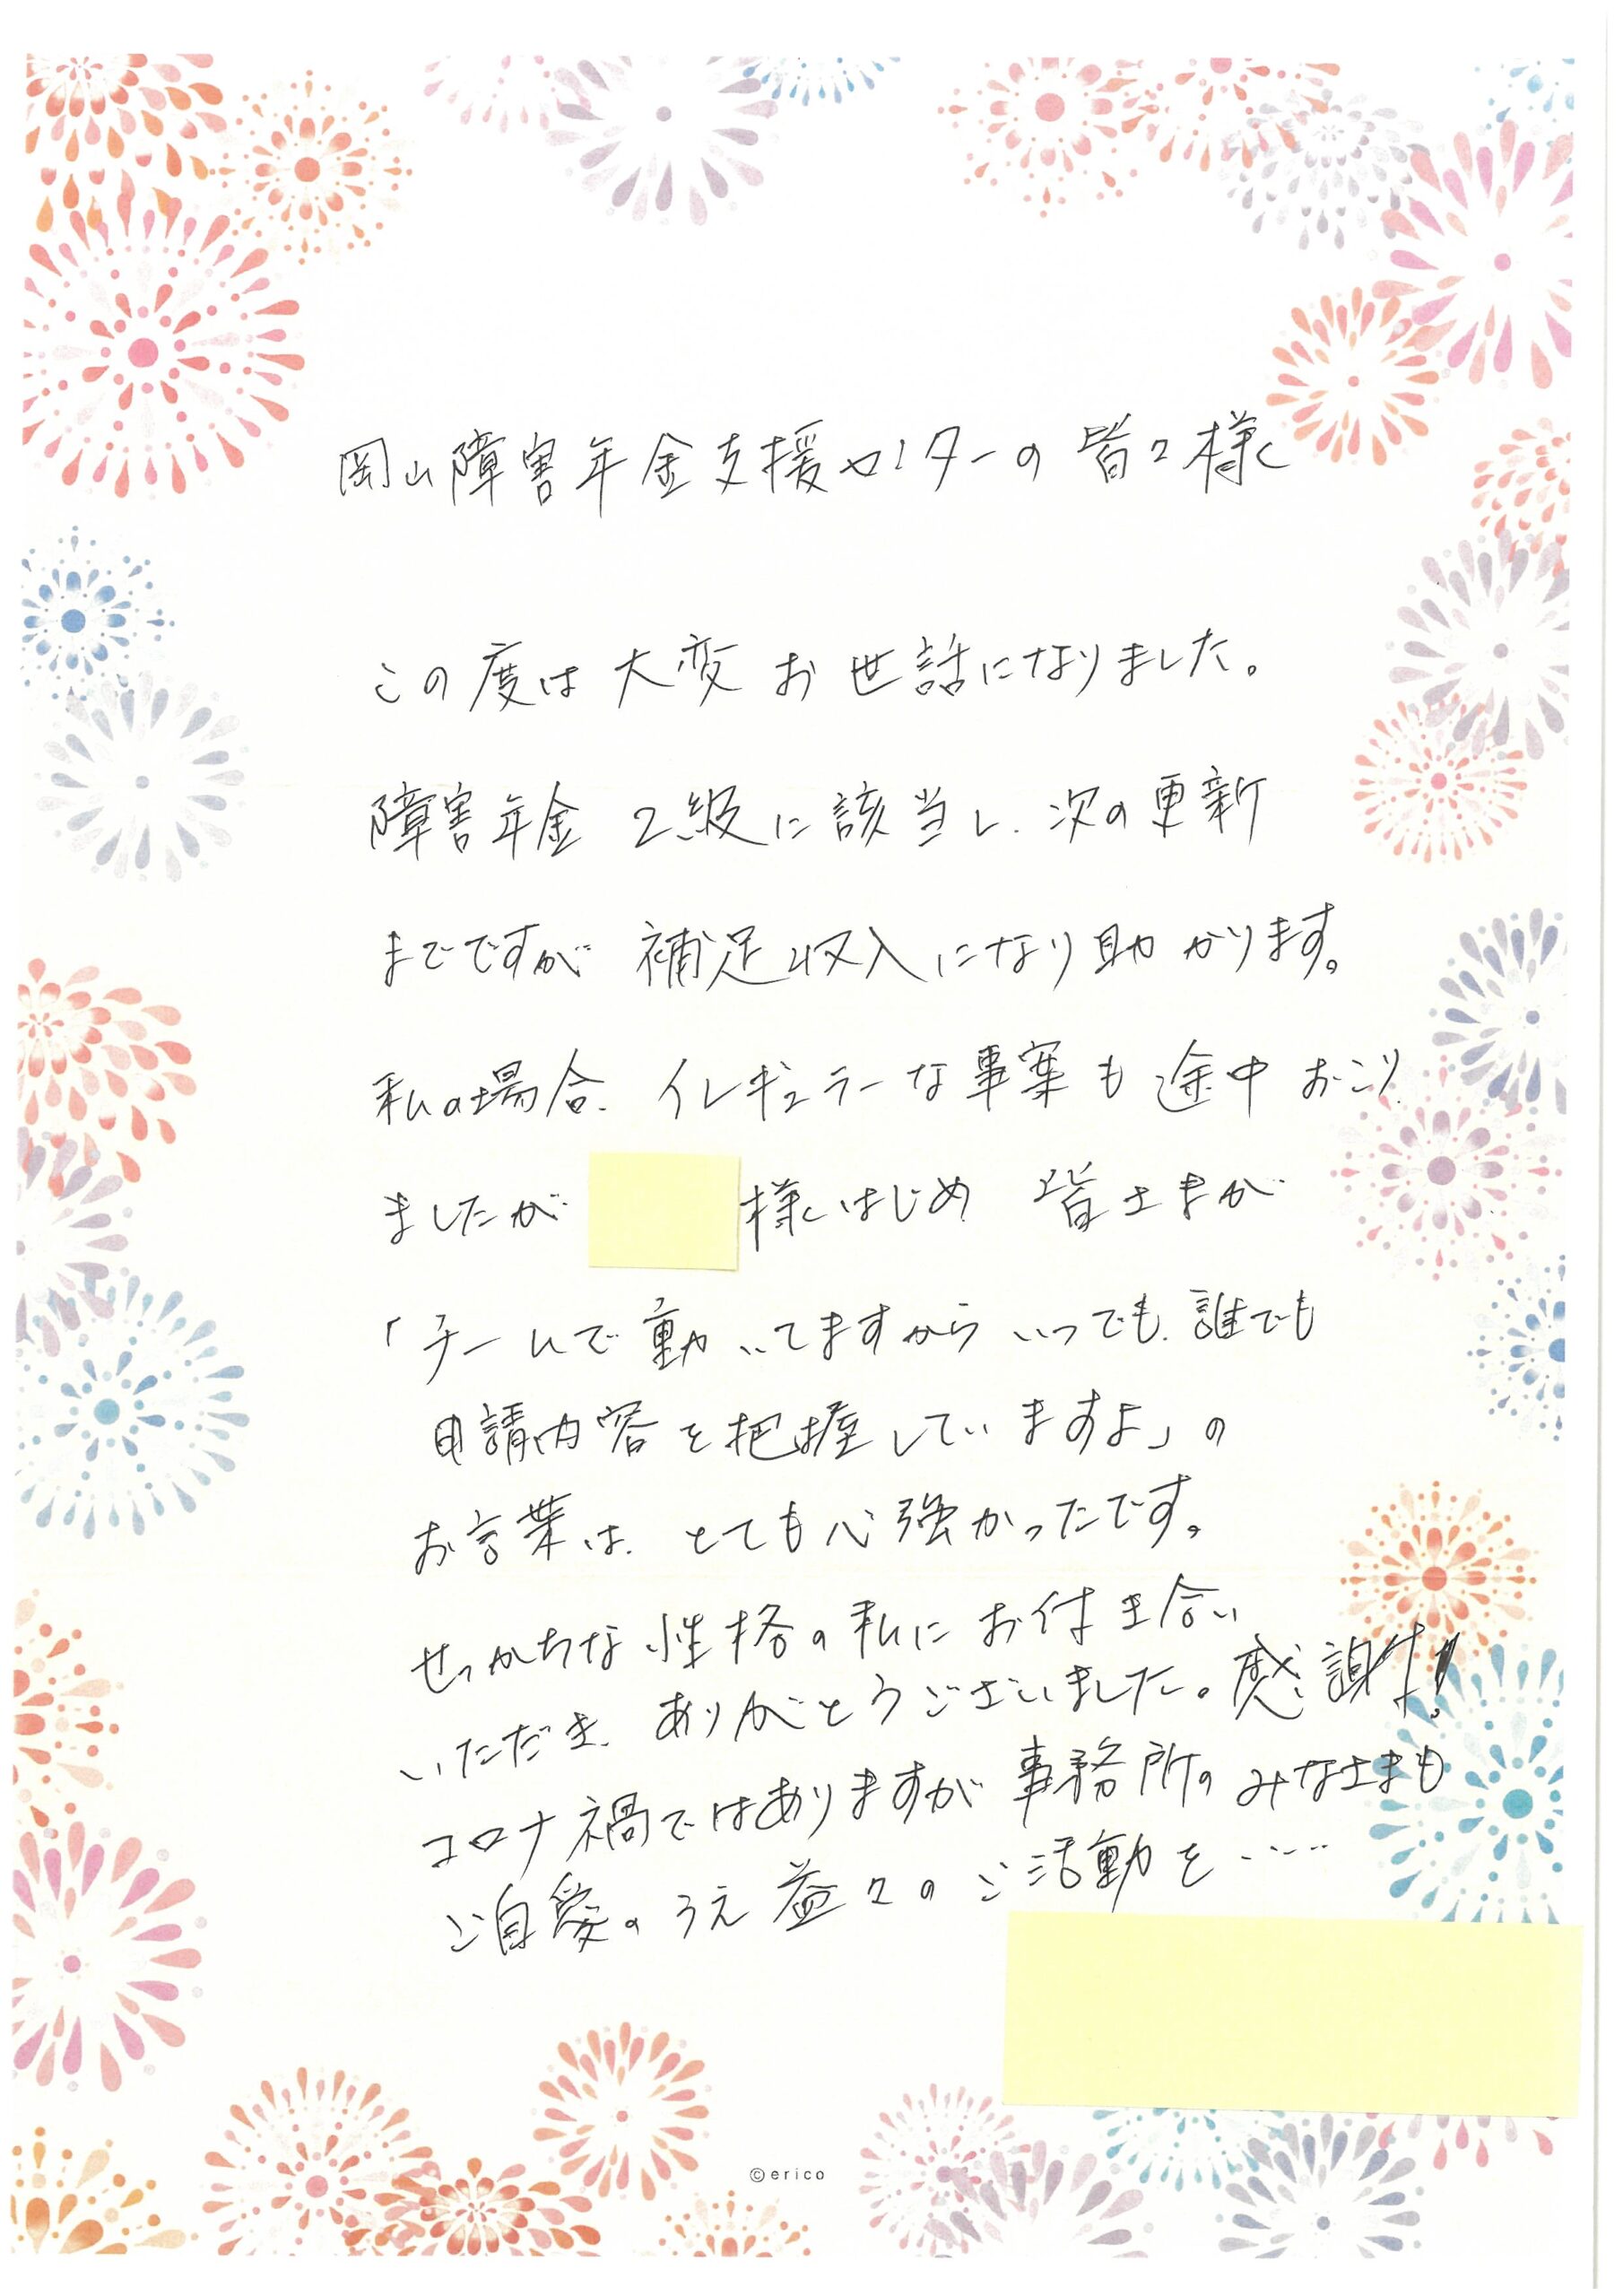 岡山障害年金支援センターの皆々様
この度は大変お世話になりました。
障害年金2級に該当し、次の更新
までですが補足収入になり助かります。
私の場合、イレギュラーな事案も途中おこり
ましたが 様はじめ 皆さまが
「チームで動いてますからいつでも、誰でも
申請内容を把握していますよ」の
お言葉は、とても心強かったです。
せっかちな性格の私にお付き合い
いただき、ありがとうございました。感謝!
コロナ禍ではありますが事務所のみなさまも
ご自愛のうえ益々のご活動を……
©erico